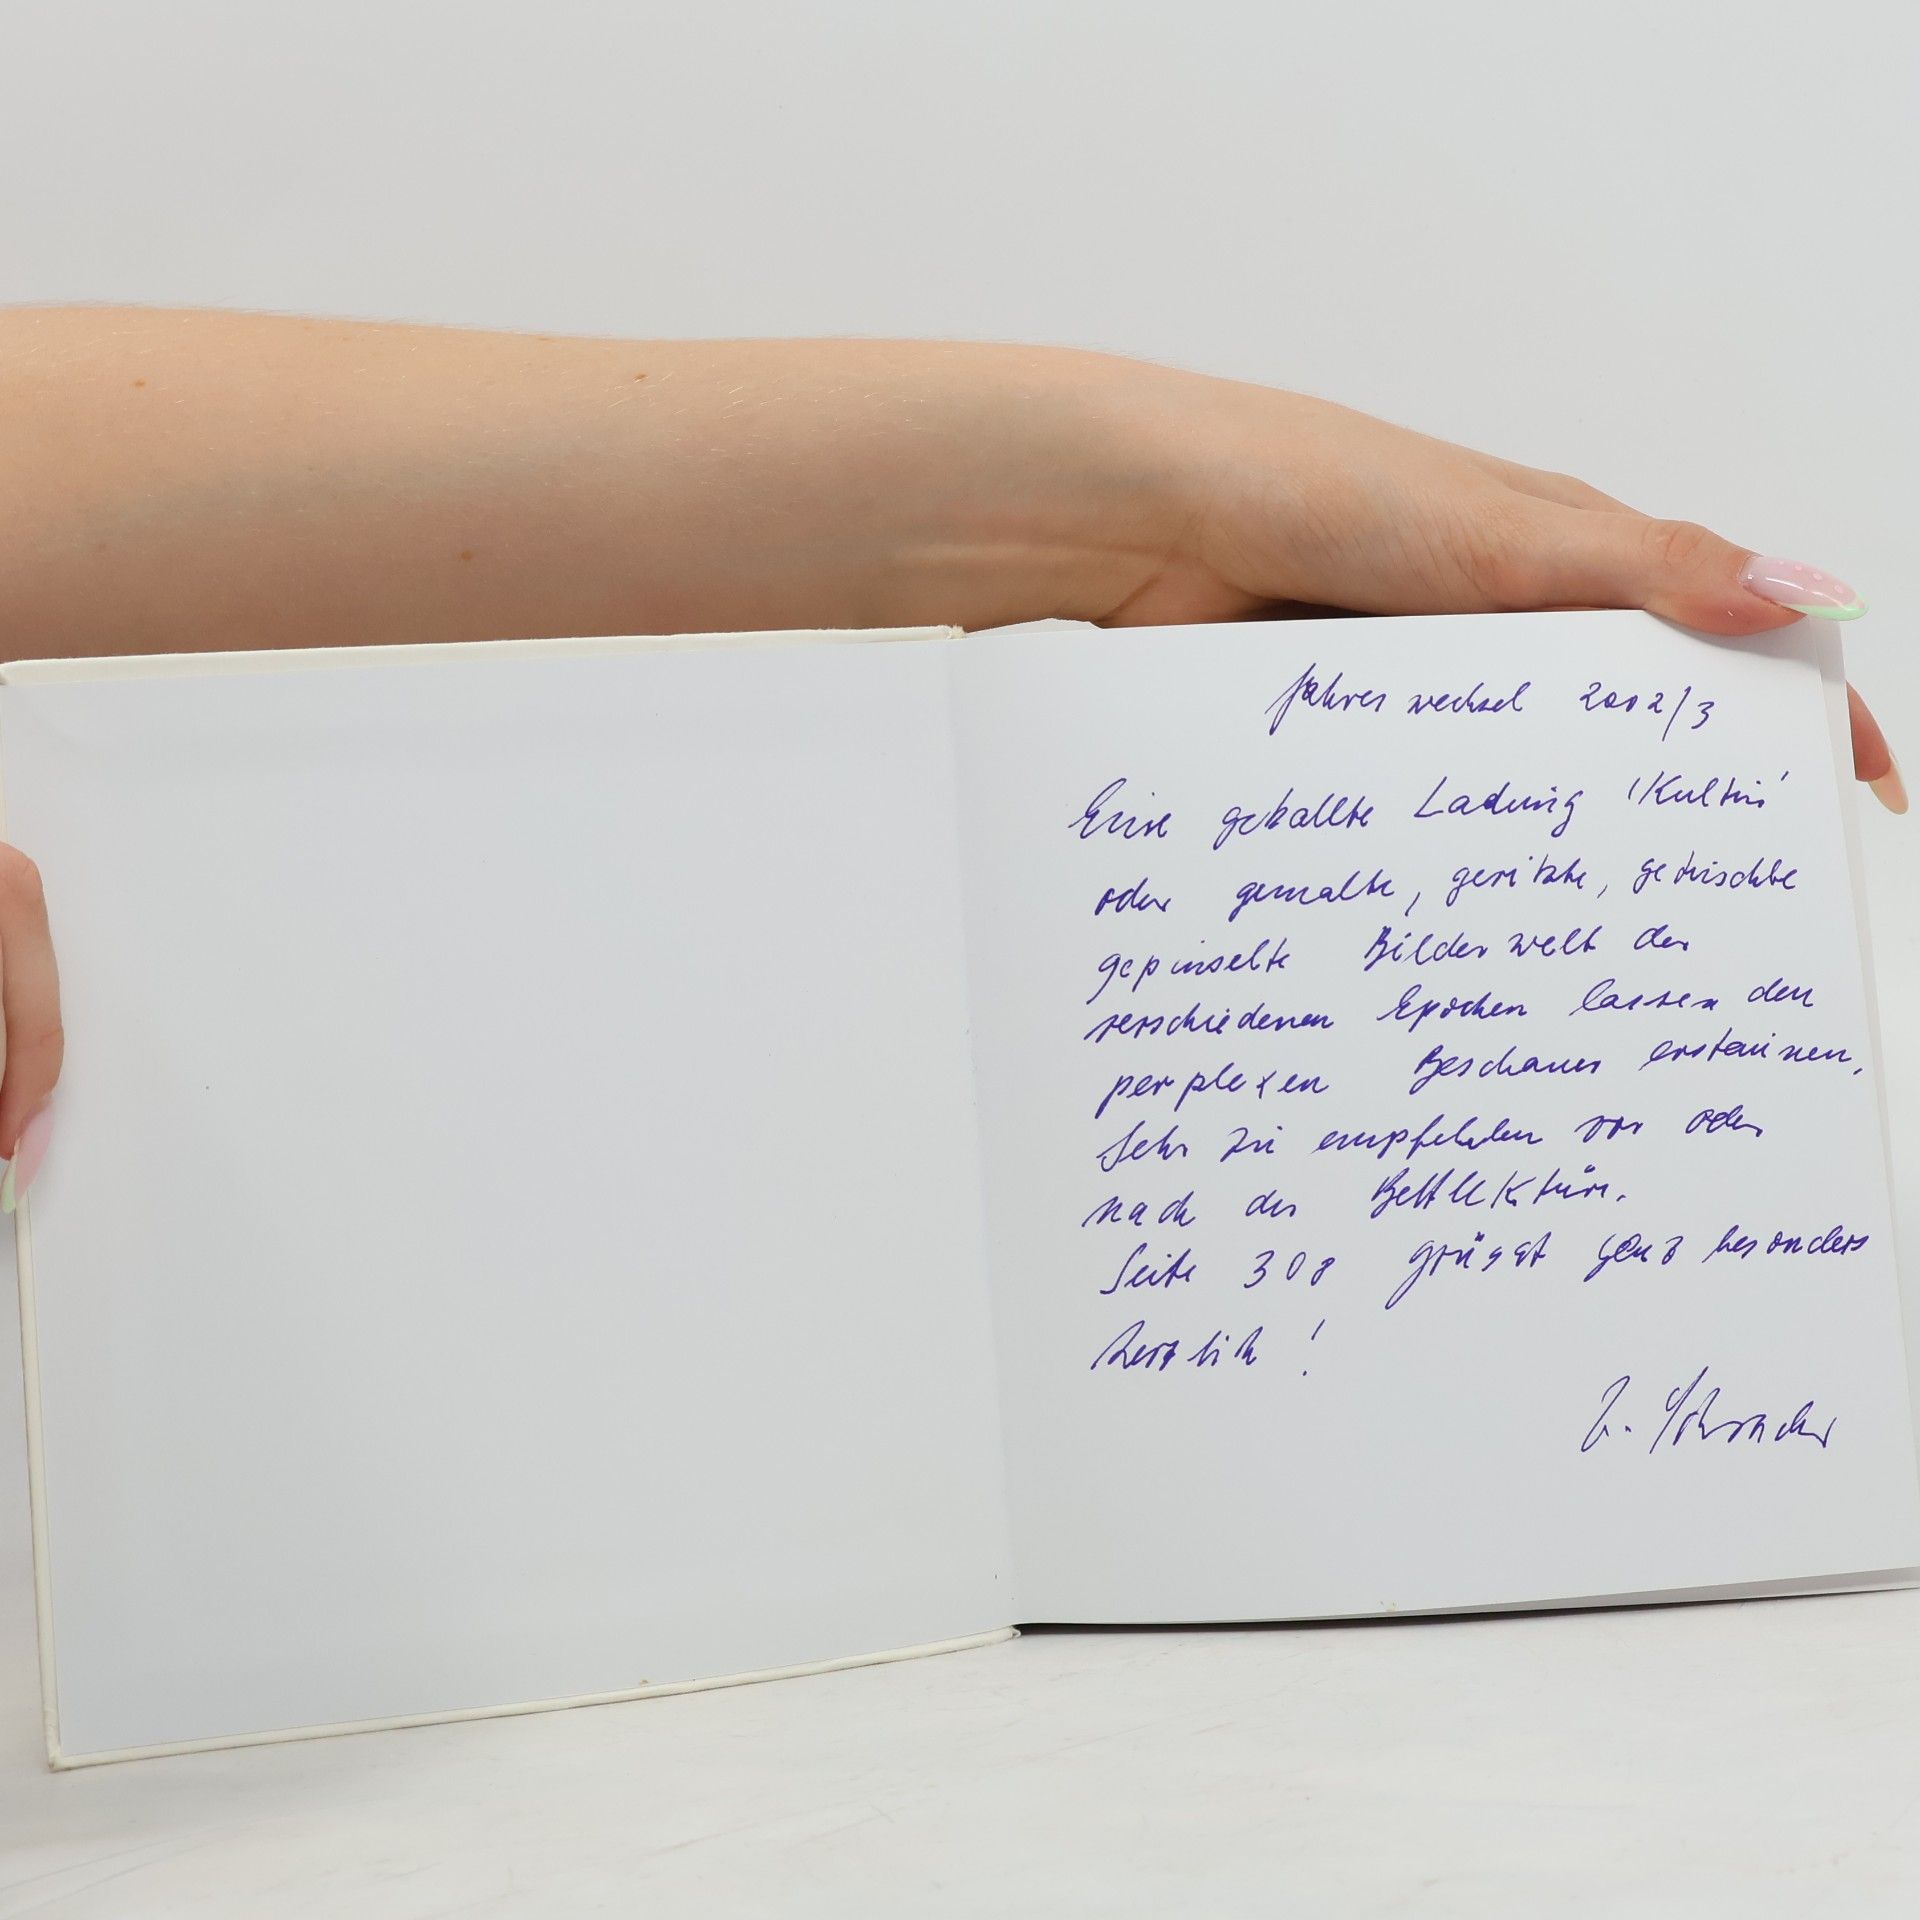 Jahreswechsel 2002/3
Eine geballte Ladung 'Kultur'
oder gemalte, geritzte,
gepinselte Bilderwelt der
verschiedenen Epochen lassen den
perplexen Beschauer erstaunen,
Sehr zu empfehlen vor oder
nach der Bettlektüre.
Seite 308 grüsst ganz besonders
herzlich !